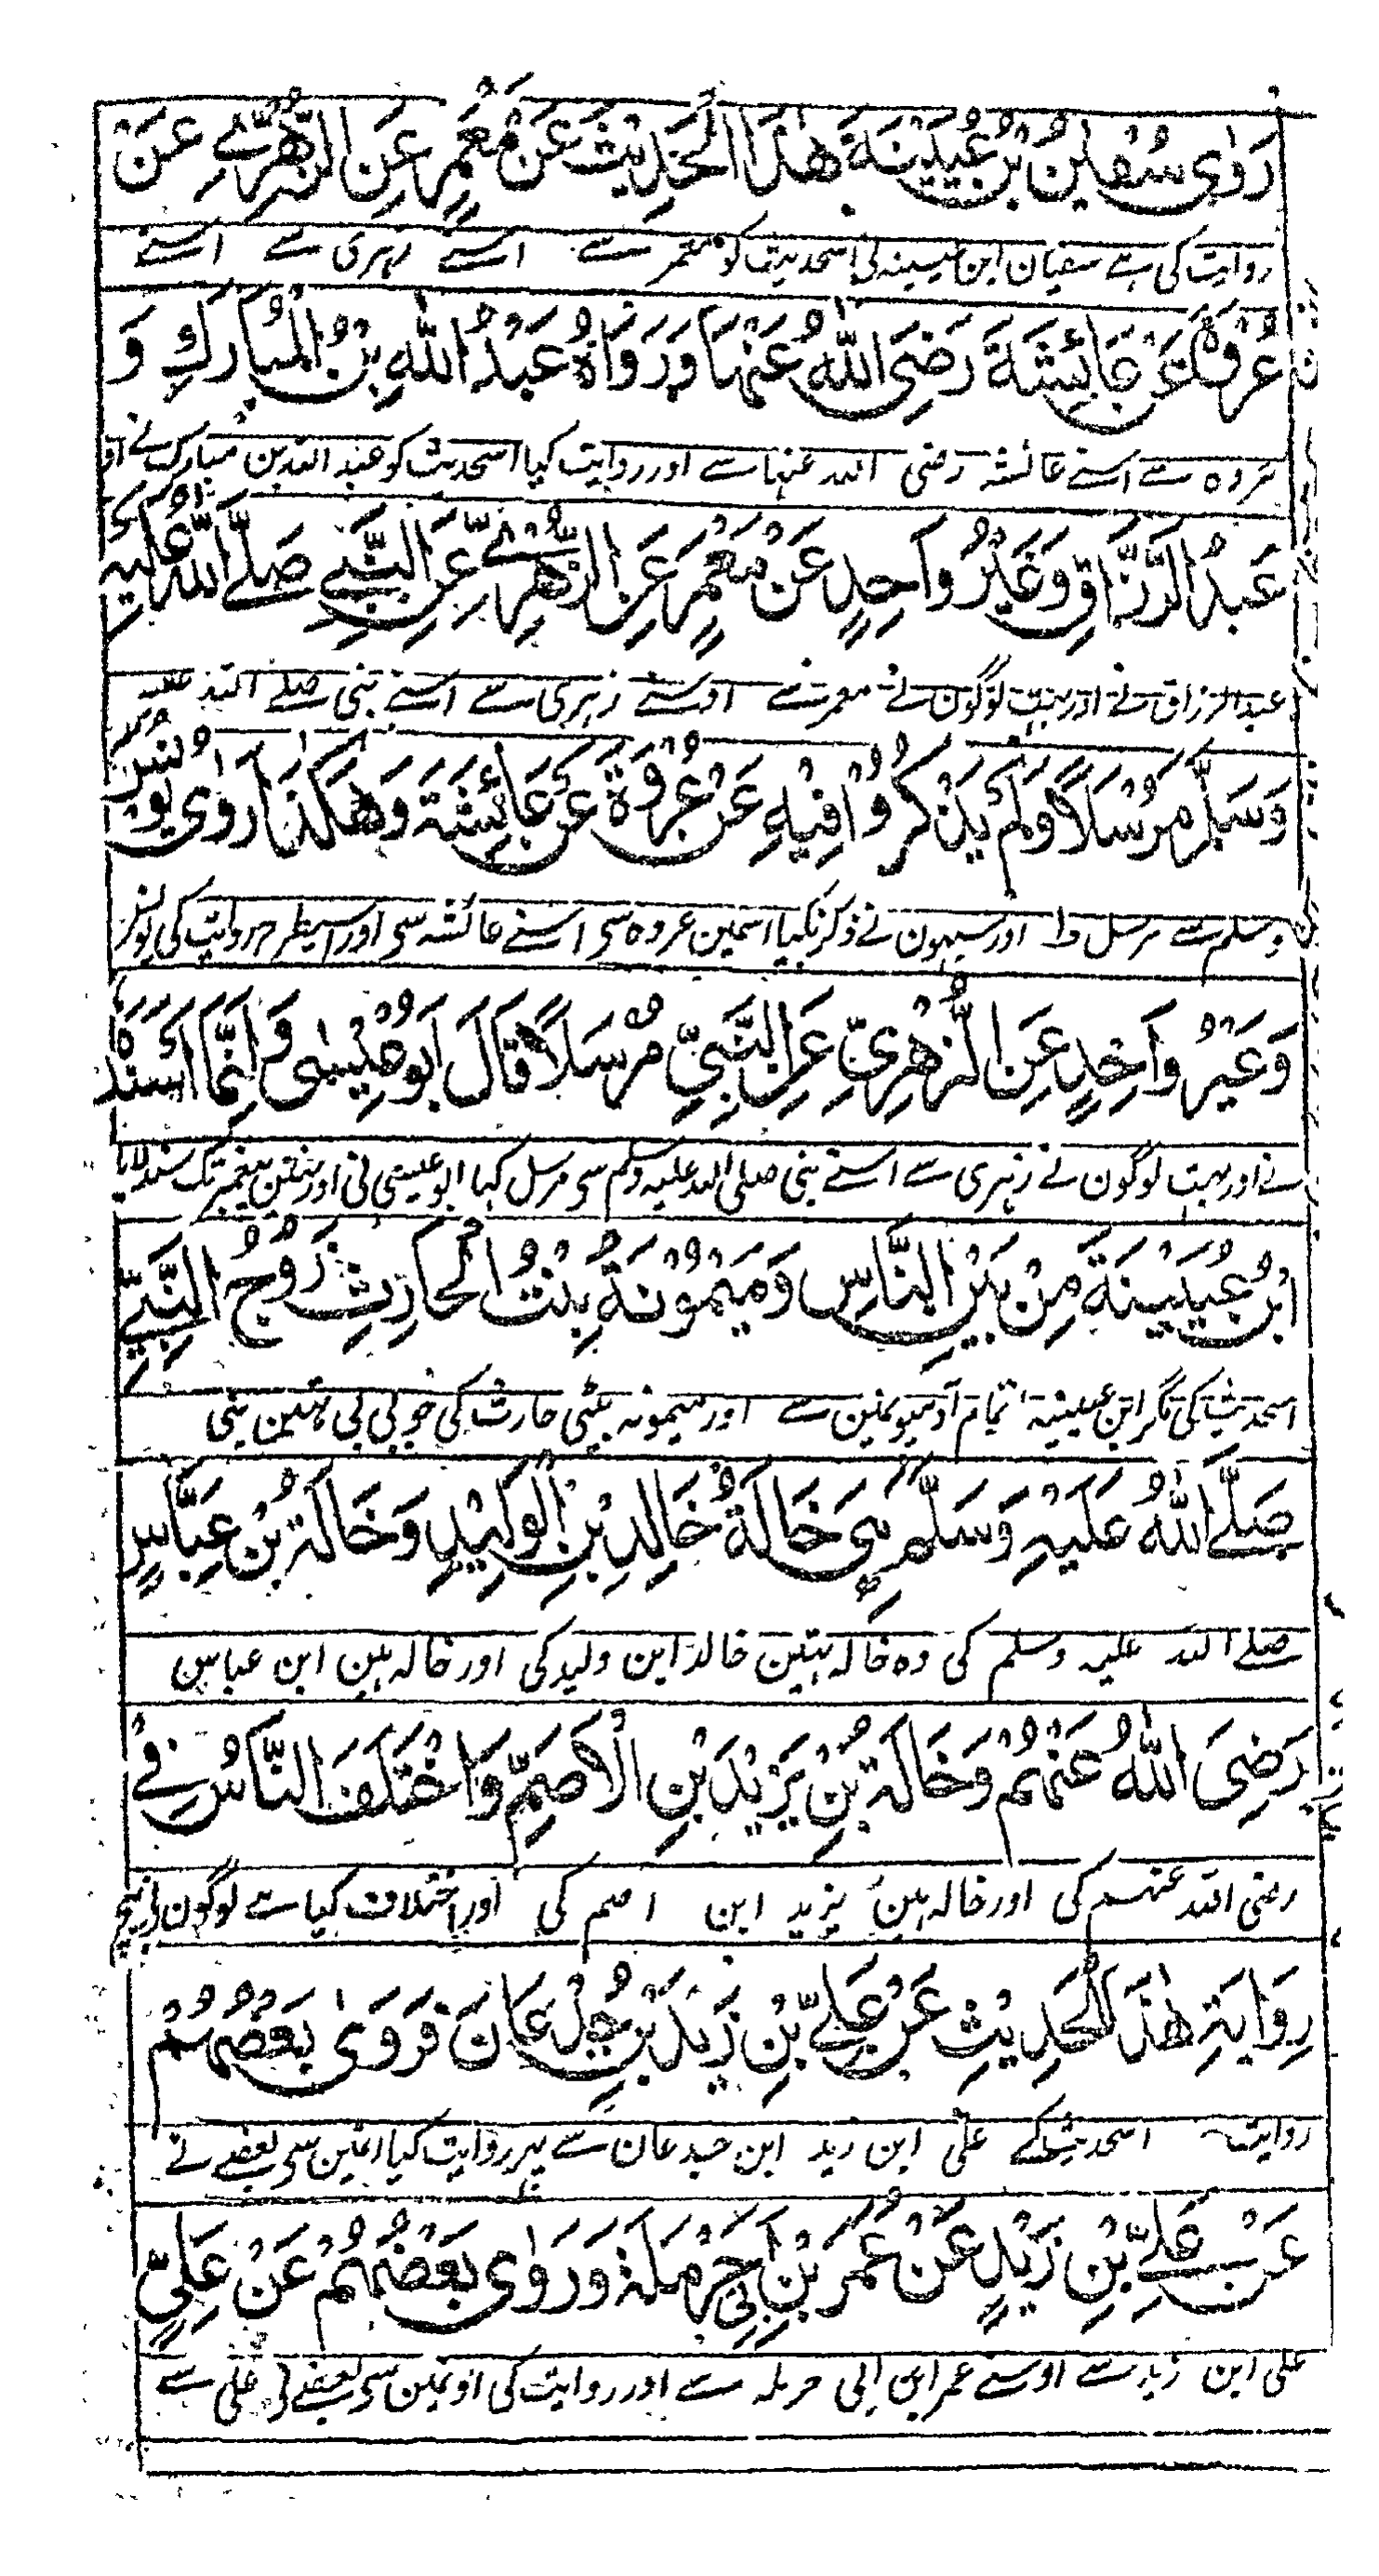 رَوٰی سُفْیٰنُ بْنُ عُیَیْنَةَ هٰذَا الْحَدِیْثَ عَنْ مَعْمَرٍ عَنِ الزُّهْرِیِّ عَنْ
روایت کی ہے سفیان ابن عیینہ نی اسحدیث کو معمر سے اسنے زہری سے اسنے
عُرْوَةَ عَنْ عَائِشَةَ رَضِیَ اللّٰهُ عَنْهَا وَرَوَاهُ عَبْدُ اللّٰهِ بْنُ الْمُبَارَكِ وَ
عروہ سے اسنے عائشہ رضی اللہ عنہا سے اور روایت کیا اسحدیث کو عبد اللہ بن مبارک نے اور
عَبْدُ الرَّزَّاقِ وَغَیْرُ وَاحِدٍ عَنْ مَعْمَرٍ عَنِ الزُّهْرِیِّ عَنِ النَّبِیِّ صَلَّے اللّٰهُ عَلَیْهِ
عبد الرزاق نے اور بہت لوگون نے معمر سے اوسنے زہری سے اسنے نبی صلے اللہ علیہ
وَسَلَّمَ مُرْسَلًا وَلَمْ یَذْكُرُوْا فِیْهِ عَنْ عُرْوَةَ عَنْ عَائِشَةَ وَهٰكَذَا رَوٰی یُوْنُسُ
وسلم سے مرسل اور سبہون نے ذکر نکیا اسمین عروہ سی اسنے عائشہ سی اور اسیطرح روایت کی یونس
وَغَیْرُ وَاحِدٍ عَنِ الزُّهْرِیِّ عَنِ النَّبِیِّ مُرْسَلًا قَالَ اَبُوْ عِیْسٰی وَاِنَّمَا اَسْنَدَهُ
نے اور بہت لوگون نے زہری سے اسنے نبی صلی اللہ علیہ وسلم سی مرسل کہا ابو عیسی نی اور نہین پیغمبر تک سند لایا
ابْنُ عُیَیْنَةَ مِنْ بَیْنِ النَّاسِ وَمَیْمُوْنَةُ بِنْتُ الْحَارِثِ زَوْجُ النَّبِیِّ
اسحدیث کی مگر ابن عیینہ تمام آدمیونمین سے اور میمونہ بیٹی حارث کی جو بی بی تہین نبی
صَلَّے اللّٰهُ عَلَیْهِ وَسَلَّمَ هِیَ خَالَةُ خَالِدِ بْنِ الْوَلِیْدِ وَخَالَةُ بْنِ عَبَّاسٍ
صلے اللہ علیہ وسلم کی وہ خالہ ہتین خالد ابن ولید کی اور خالہ ہین ابن عباس
رَضِیَ اللّٰهُ عَنْهُمْ وَخَالَةُ بْنِ یَزِیْدَ بْنِ الْاَصَمِّ وَاخْتَلَفَ النَّاسُ فِیْ
رضی اللہ عنہم کی اور خالہ ہین یزید ابن اصم کی اور اختلاف کیا ہے لوگون نی بیچ
رِوَایَةِ هٰذَا الْحَدِیْثِ عَنْ عَلِیِّ بْنِ زَیْدِ بْنِ جُدْعَانَ فَرَوٰی بَعْضُهُمْ
روایت اسحدیث کے علی ابن زید ابن جدعان سے پہر روایت کیا انمین سی بعضے نے
عَنْ عَلِیِّ بْنِ زَیْدٍ عَنْ عُمَرَ بْنِ اَبِیْ حَرْمَلَةَ وَرَوٰی بَعْضُهُمْ عَنْ عَلِیٍّ
علی ابن زید سے اوسنے عمر ابن ابی حرملہ سے اور روایت کی اونمین سی بعضے نی علی سے